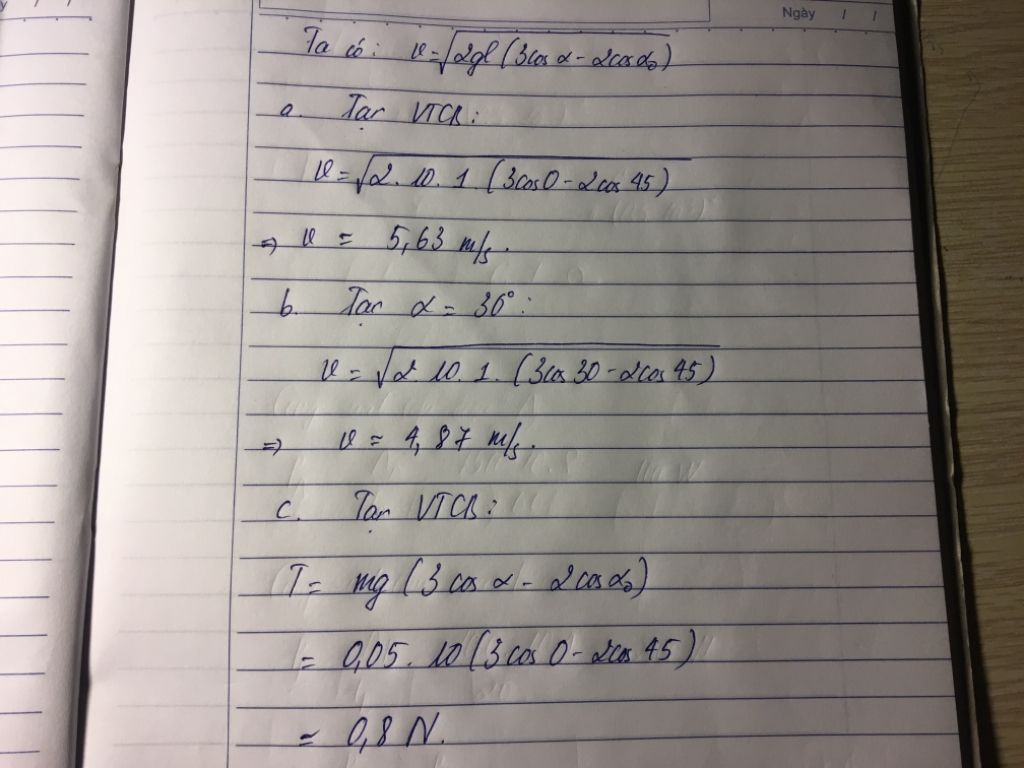 Ngày / /
Ta có: v=√2gl(3cosα-2cosα₀)
a. Tại VTCB:
v=√2.10.1.(3cos0-2cos45)
=> v = 5,63 m/s.
b. Tại α = 30°:
v=√2.10.1.(3cos30-2cos45)
=> v = 4,87 m/s.
c. Tại VTCB:
T= mg(3cosα-2cosα₀)
= 0,05.10(3cos0-2cos45)
= 0,8 N.